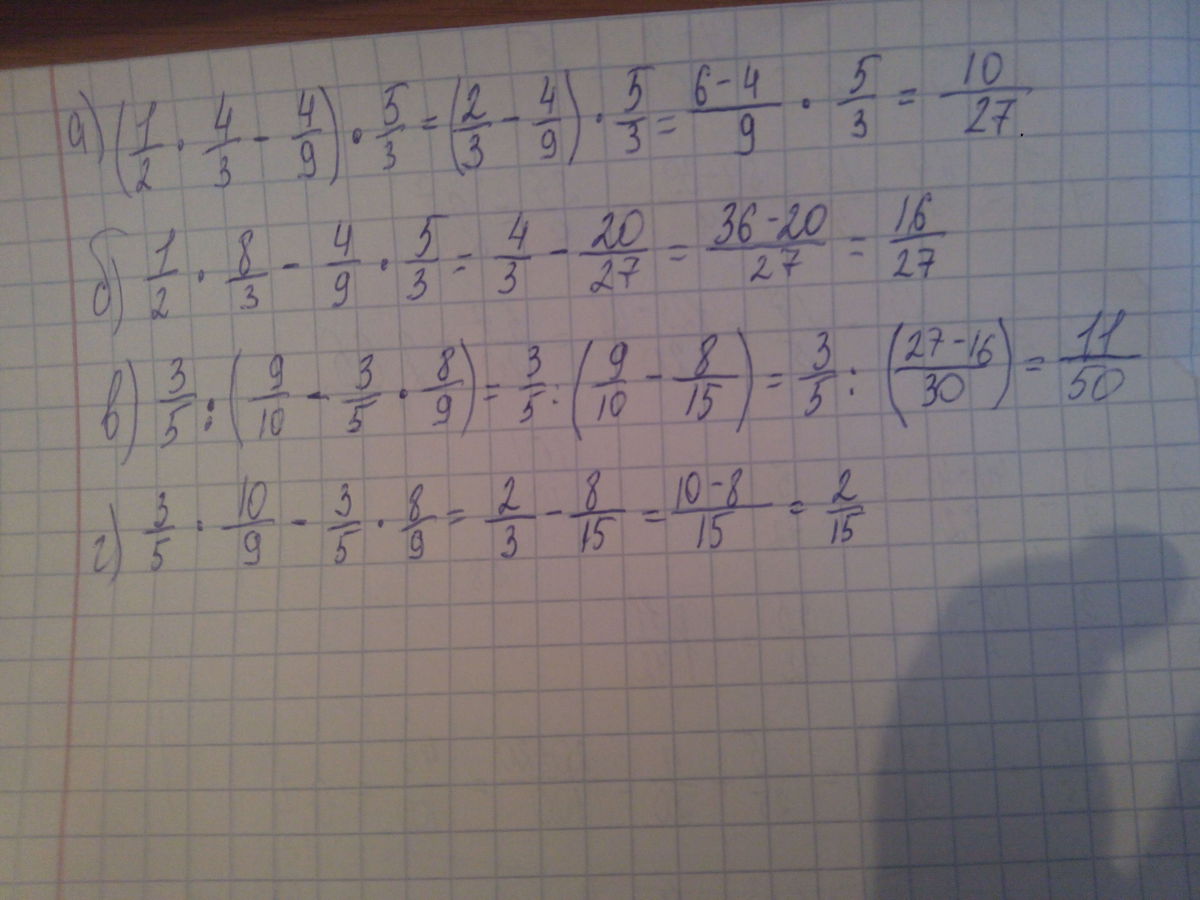 а) (1/2 · 4/3 - 4/9) · 5/3 = (2/3 - 4/9) · 5/3 = (6-4)/9 · 5/3 = 10/27
б) 1/2 · 8/3 - 4/9 · 5/3 = 4/3 - 20/27 = (36-20)/27 = 16/27
в) 3/5 : (9/10 - 3/5 · 8/9) = 3/5 : (9/10 - 8/15) = 3/5 : ((27-16)/30) = 11/50
г) 3/5 · 10/9 - 3/5 · 8/9 = 2/3 - 8/15 = (10-8)/15 = 2/15